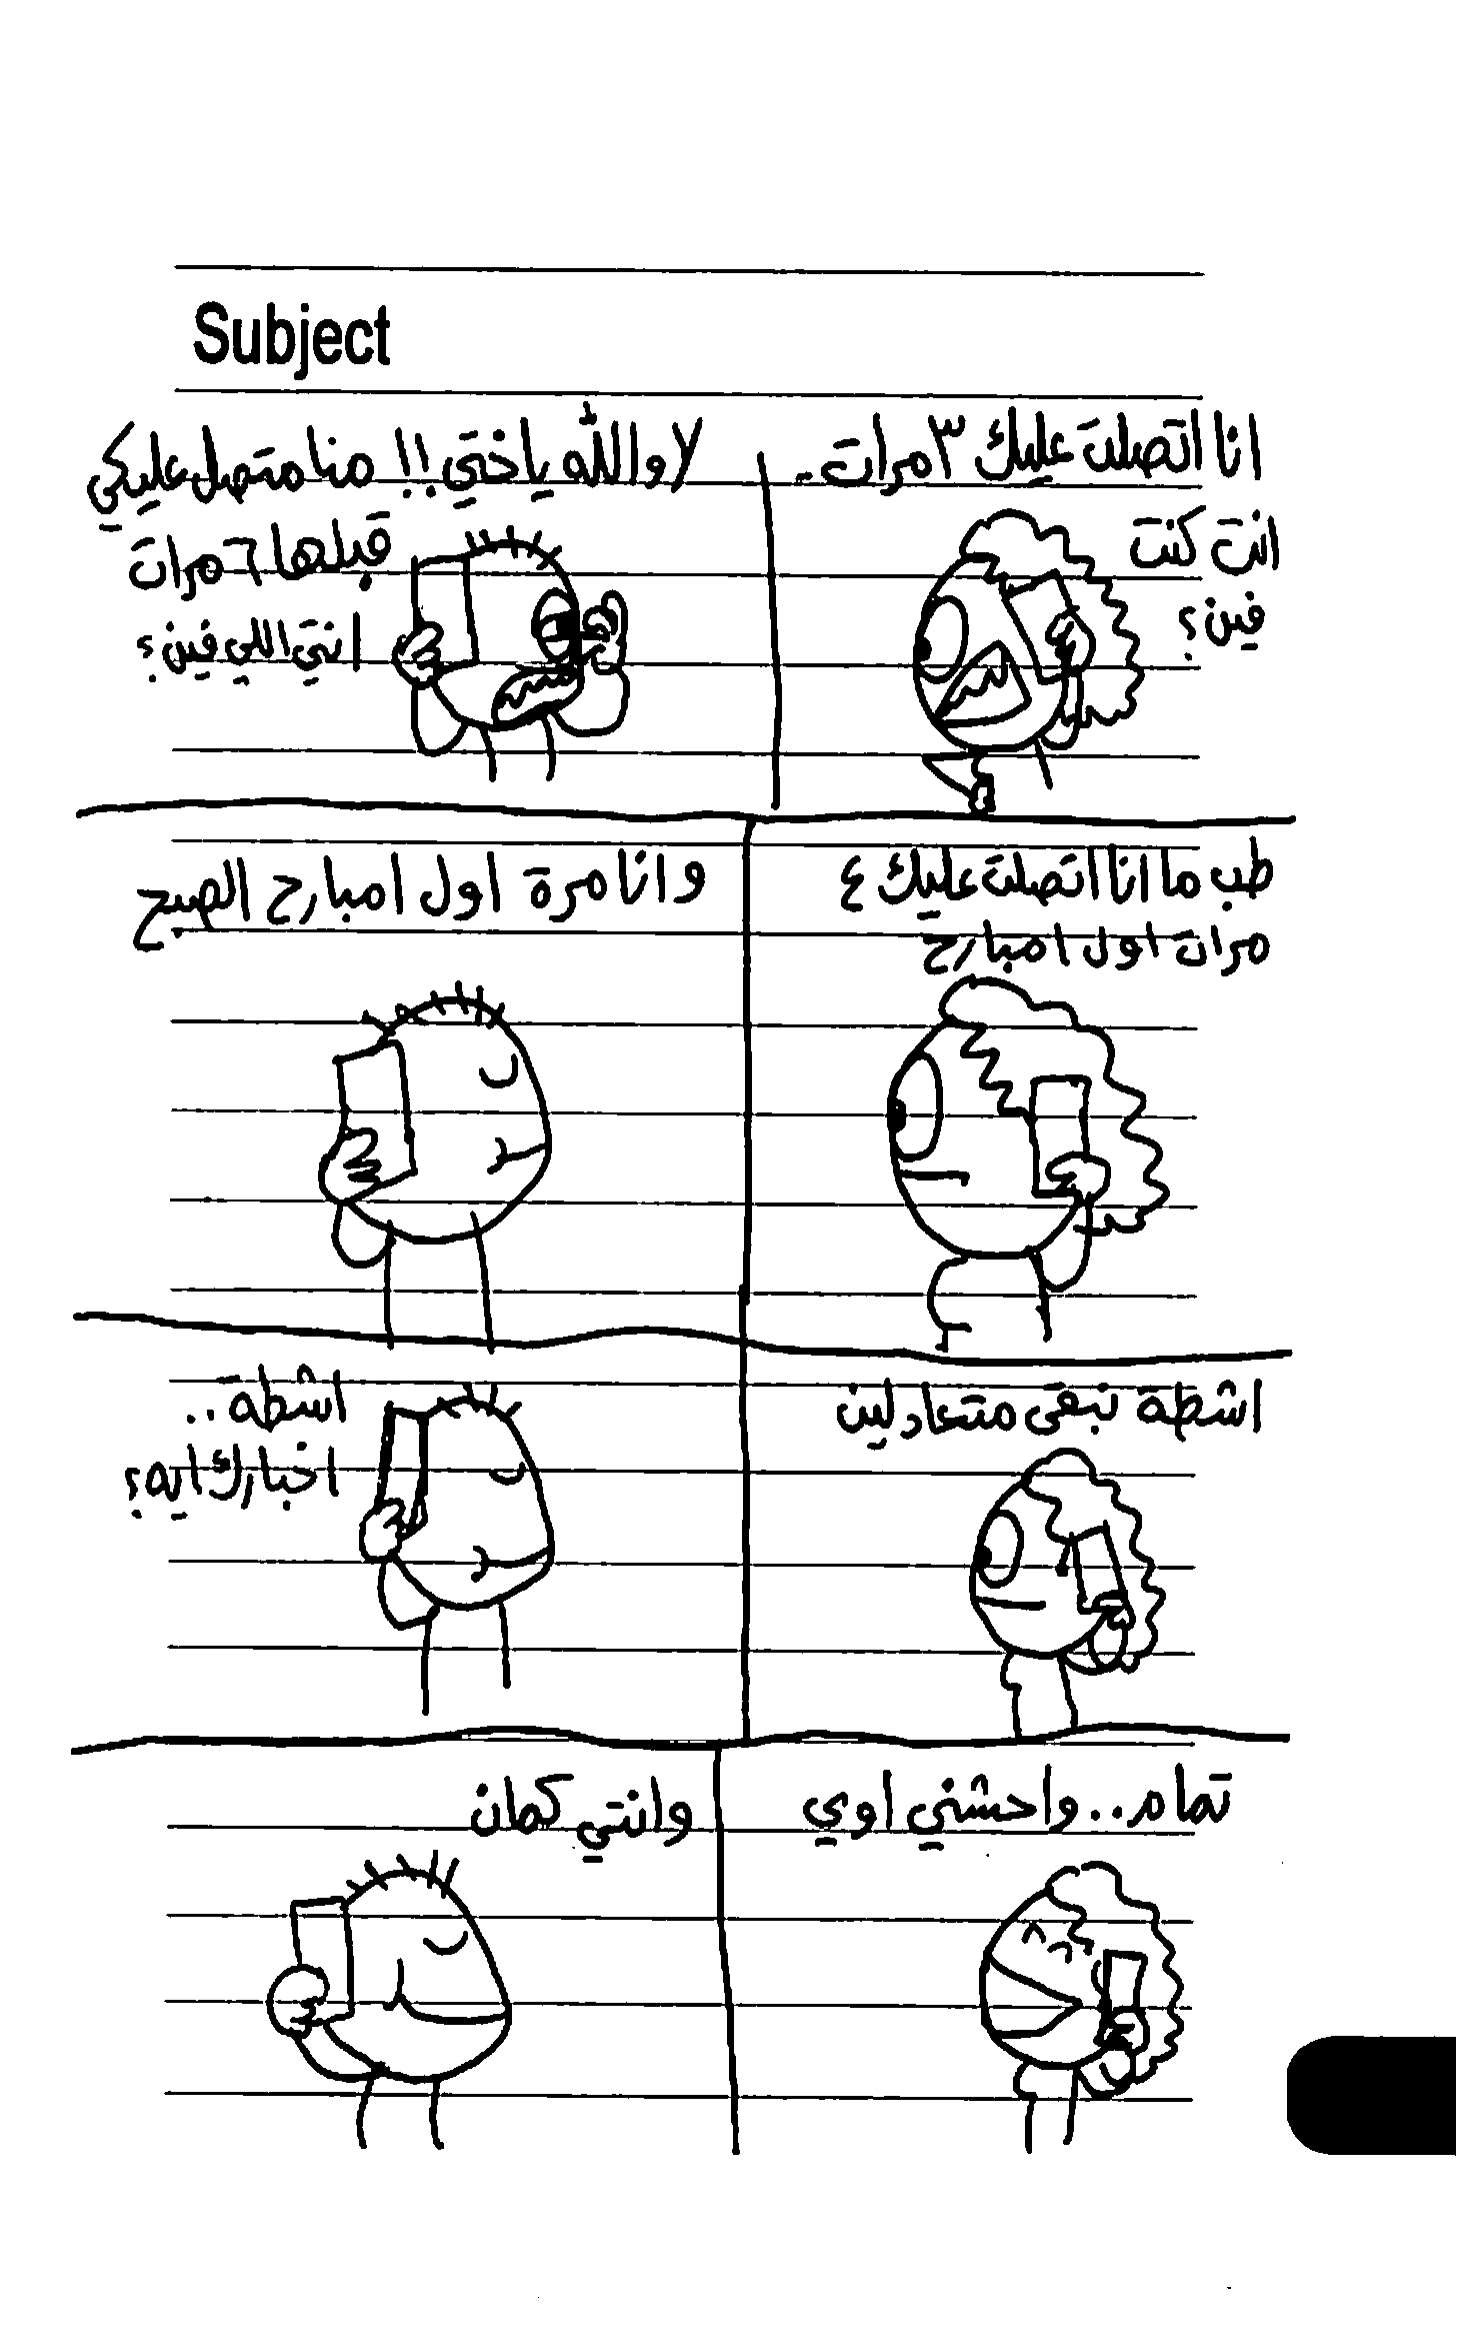 Subject
انا اتصلت عليك ٣ مرات..
انت كنت
فين؟
لا والله ياختي!! منا متصل عليكي
قبلها ٦ مرات
انتي اللي فين؟
طب ما انا اتصلت عليك ٤
مرات اول امبارح
و انا مرة اول امبارح الصبح
اشطة نبقى متعادلين
اشطة..
اخبارك ايه؟
تمام.. واحشني اوي
وانتي كمان